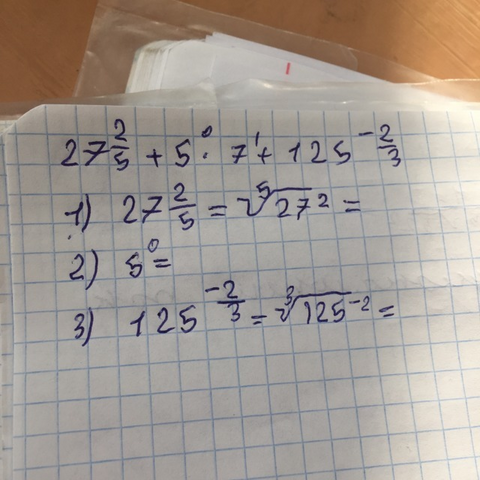 27^(2/5) + 5^0 · 7^1 + 125^(-2/3)
1) 27^(2/5) = ⁵√(27²) =
2) 5^0 =
3) 125^(-2/3) = ³√(125⁻²) =